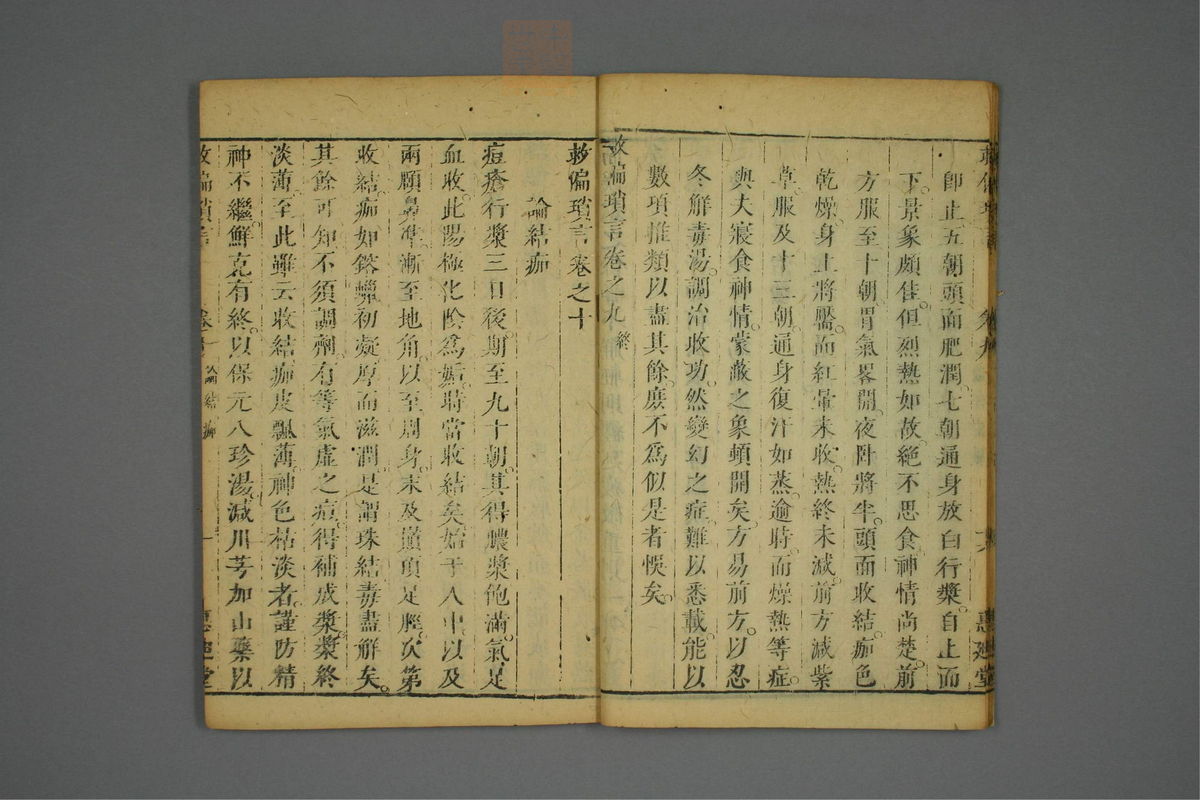 救偏瑣言 卷九 十六 惠迪堂
卽止五朝頭面肥潤七朝通身放白行漿自上而
下景象頗佳但烈熱如故絕不思食神情尚楚前
方服至十朝胃氣畧開夜卧將半頭面收結痂色
乾燥身上將靨而紅暈未收熱終未減前方減紫
草服及十三朝通身復汗如蒸逾時而燥熱等症
與夫寢食神情蒙蔽之象頓開矣方易前方以忍
冬解毒湯調治收功然變幻之症難以悉載能以
數項推類以盡其餘庶不爲似是者悞矣
救偏瑣言卷之九終
救偏瑣言卷之十
論結痂
痘瘡行漿三日後期至九十朝其得膿漿飽滿氣足
血收此陽極化陰爲姤時當收結矣始于人中以及
兩顴鼻準漸至地角以至周身末及巔頂足脛次第
收結痂如鎔蠟初凝厚而滋潤是謂珠結毒盡解矣
其餘可知不須調劑有等氣虛之痘得補成漿漿終
淡薄至此雖云收結痂皮飄薄神色枯淡者謹防精
神不繼鮮克有終以保元八珍湯減川芎加山藥以
救偏瑣言 卷十 論結痂 一 惠迪堂